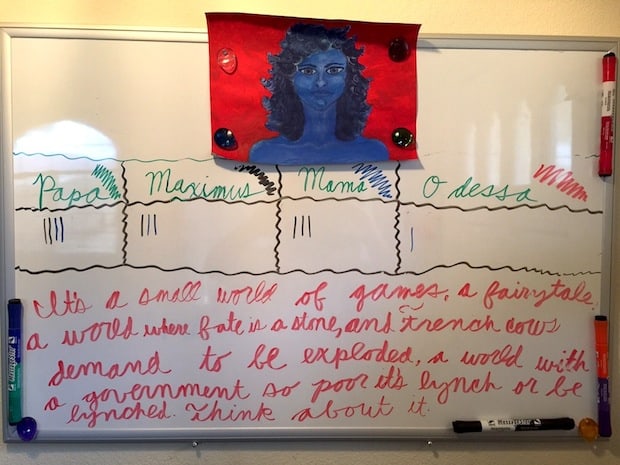 Papa Maximus Mama Odessa
It's a small world of games, a fairytale,
a world where fate is a stone, and French cows
demand to be exploded, a world with
a government so poor it's lynch or be
lynched. Think about it.